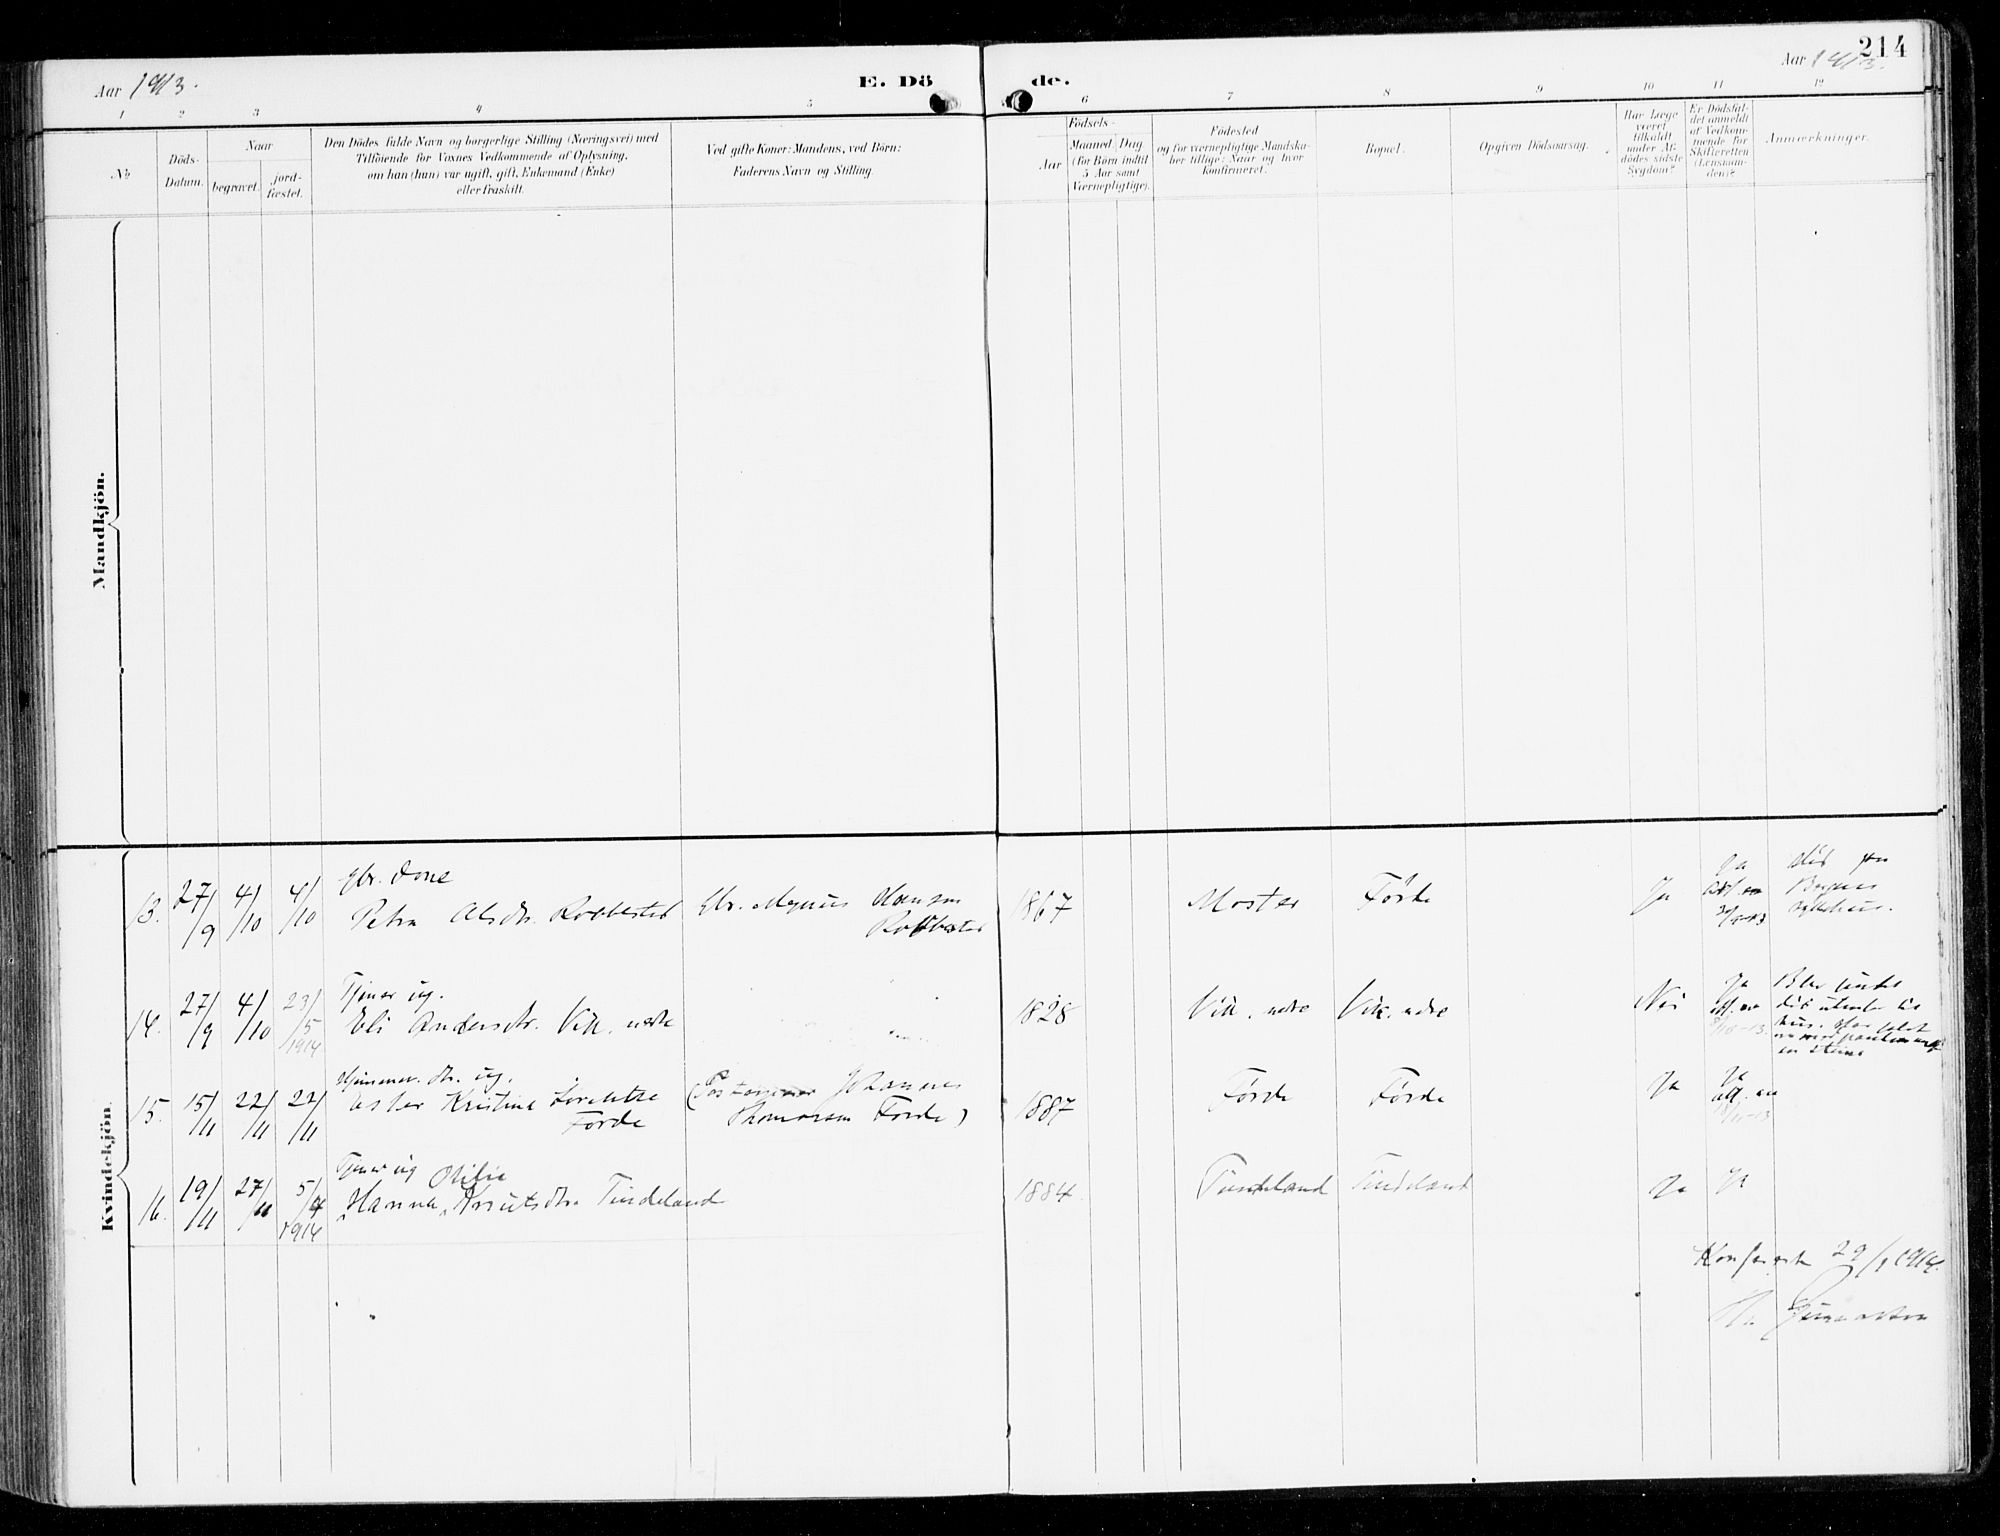 Aar 1913.
E. Dö de.
Aar 1913.
214
1 2 3 4 5 6 7 8 9 10 11 12
No
Döds-Datum.
Naar
begravet.
jord-fæstet.
Den Dödes fulde Navn og borgerlige Stilling (Næringsvei) med
Tilföiende for Voxnes Vedkommende af Oplysning,
om han (hun) var ugift, gift, Enkemand (Enke)
eller fraskilt.
Ved gifte Koner: Mandens, ved Börn:
Faderens Navn og Stilling.
Födsels-
Aar
Maaned. Dag
(for Börn indtil
5 Aar samt
Værnepligtige).
Födested
og for værnepligtige Mandska-
ber tillige: Naar og hvor
konfirmeret.
Bopæl.
Opgiven Dödsaarsag.
Har Læge
været
tilkaldt
under Af-
dödes sidste
Sygdom?
Er Dödsfal-
det anmeldt
af Vedkom-
mende for
Skifteretten
(Lensman-
den)?
Anmærkninger.
Mandkjön.
Kvindekjön.
13. 27/9 4/10 4/10
Gbr. kone
Petra Olsdtr. Robbestad
Gbr. Magnus Hansen
Robbestad
1867 Moster Førde Ja Ja
død paa
Bergens
sykehus.
14. 27/9 4/10 23/5 1914
Tjener ug.
Eli Andersdtr. Vik, nedre
1828 Vik, nedre Vik, nedre Nei Ja
Blev fundet
død utenfor sit
hus.
15. 15/11 22/11 22/11
Hjemmev. dtr. ug.
Ester Kristine Lorentse
Førde
Johannes
Thomassen Førde)
1887 Førde Førde Ja Ja
16. 19/11 27/11 5/4 1914
Tjener ug Otilie
Hanna Knutsdtr. Tindeland
1884 Tindeland Tindeland Ja Ja
Konfererte 29/1 1914.